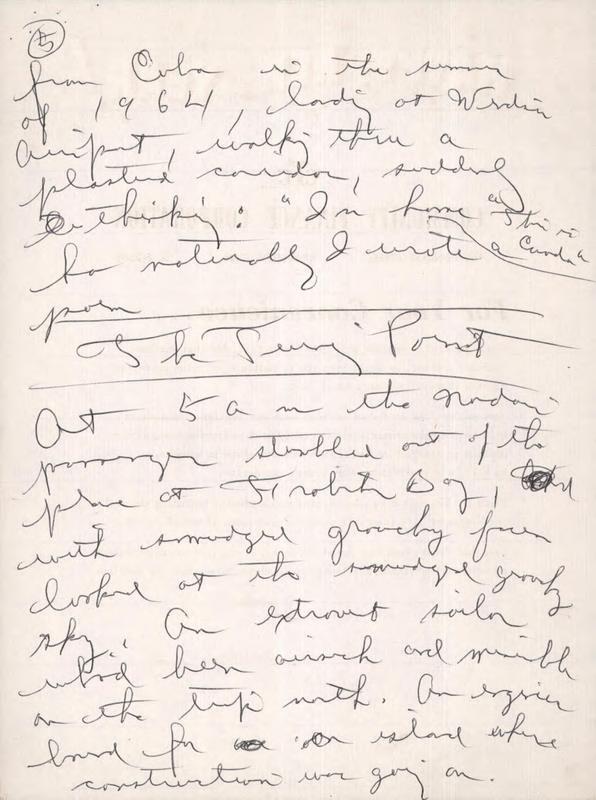 5
from Cuba in the summer
of 1964, landing at
airport, walking thru a
plastered corridor, suddenly
thinking: "I'm home - this is
Canada"
So naturally I wrote a
poem
The Turning Point
At 5 a m the
passengers stumbled out of the
plane at Frobisher Bay,
with smudged grouchy faces
looked at the smudged grouchy
sky. An extrovert sailor
who'd been airsick and miserable
on the trip north. An engineer
bound for an island where
construction was going on.